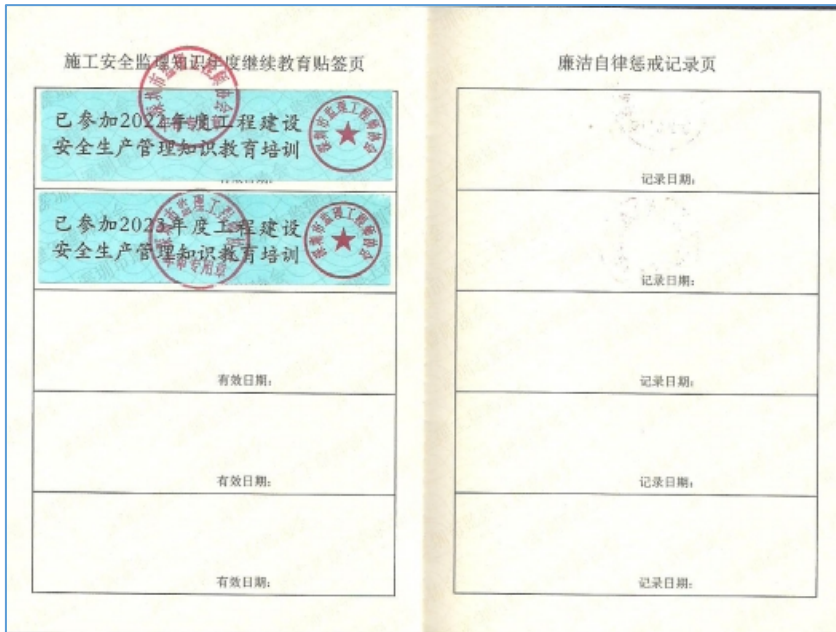 施工安全监理知识年度继续教育贴签页
已参加2022年度工程建设
安全生产管理知识教育培训
深圳市监理工程师协会
有效日期:
已参加2023年度工程建设
安全生产管理知识教育培训
深圳市监理工程师协会
有效日期:
有效日期:
有效日期:
廉洁自律惩戒记录页
记录日期:
记录日期:
记录日期:
记录日期:
记录日期: